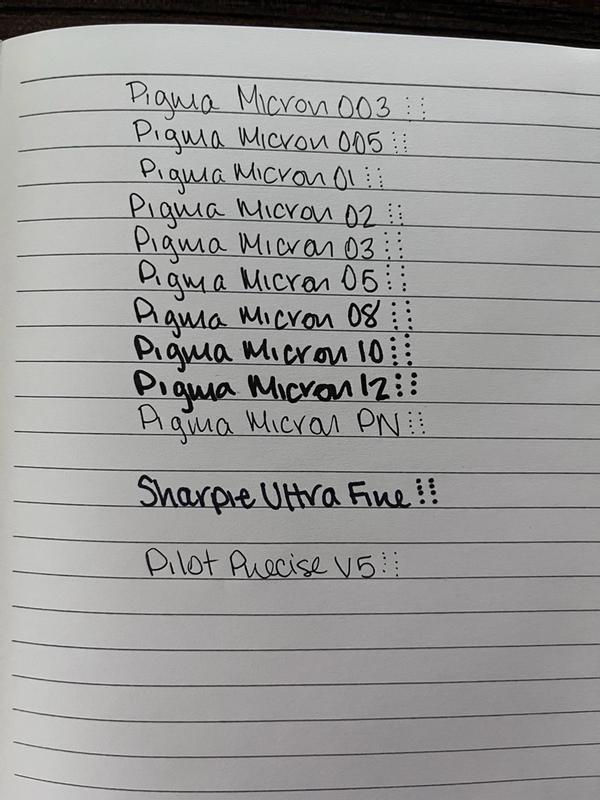 Pigma Micron 003
Pigma Micron 005
Pigma Micron 01
Pigma Micron 02
Pigma Micron 03
Pigma Micron 05
Pigma Micron 08
Pigma Micron 10
Pigma Micron 12
Pigma Micron PN
Sharpie Ultra Fine
Pilot Precise V5